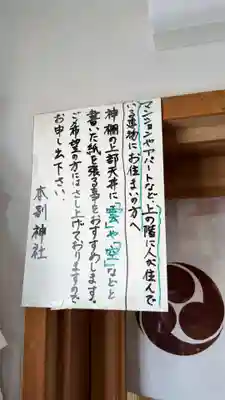 マンションやアパートなど、上の階に人が住んで
いる建物にお住まいの方へ
神棚の上部天井に「雲」や「空」などと
書いた紙を張る事をおすすめします。
ご希望の方にはさし上げておりますので
お申し出下さい。
本別神社